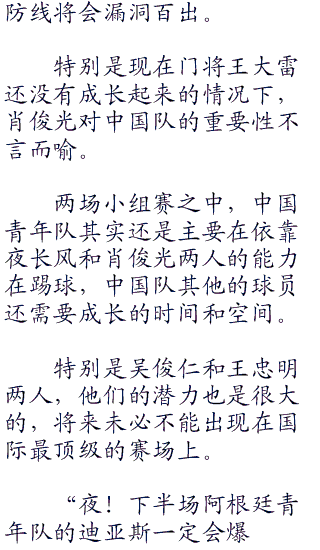 防线将会漏洞百出。
特别是现在门将王大雷
还没有成长起来的情况下，
肖俊光对中国队的重要性不
言而喻。
两场小组赛之中，中国
青年队其实还是主要在依靠
夜长风和肖俊光两人的能力
在踢球，中国队其他的球员
还需要成长的时间和空间。
特别是吴俊仁和王忠明
两人，他们的潜力也是很大
的，将来未必不能出现在国
际最顶级的赛场上。
“夜！下半场阿根廷青
年队的迪亚斯一定会爆